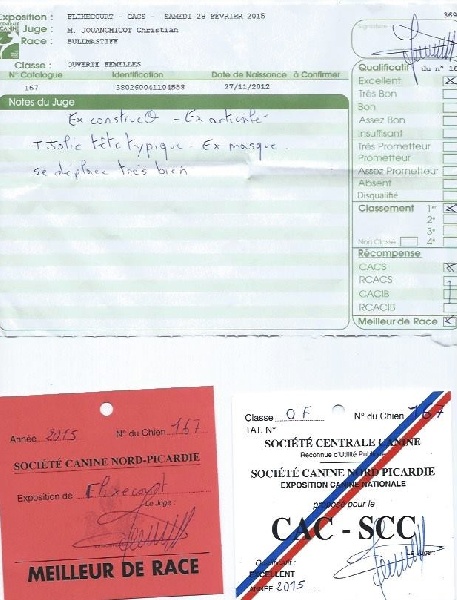 Exposition : FLIXECOURT - CACS - SAMEDI 28 FEVRIER 2015
Juge : M. JOUANCHICOT Christian
Race : BULLMASTIFF
Classe : OUVERTE FEMELLES
N° Catalogue Identification Date de Naissance à Confirmer
167 27/11/2012
Notes du Juge
Ex construct° - Ex activité
T Jolie tête typique. Ex masque.
se déplace très bien
Signature
Qualificatif du n° 16
Excellent
Très Bon
Bon
Assez Bon
Insuffisant
Très Prometteur
Prometteur
Assez Prometteur
Absent
Disqualifié
Classement 1er
2e
3e
Non Classé 4e
Récompense
CACS
RCACS
CACIB
RCACIB
Meilleur de Race
Année 2015 N° du Chien 167
SOCIÉTÉ CANINE NORD-PICARDIE
Exposition de Flixecourt
Le Juge :
MEILLEUR DE RACE
Classe OF N° du Chien 167
TAT. N°
SOCIÉTÉ CENTRALE CANINE
Reconnue d'Utilité Publique
SOCIÉTÉ CANINE NORD PICARDIE
EXPOSITION CANINE NATIONALE
proposé pour le
CAC - SCC
Le Juge :
Qualificatif :
EXCELLENT
ANNÉE 2015